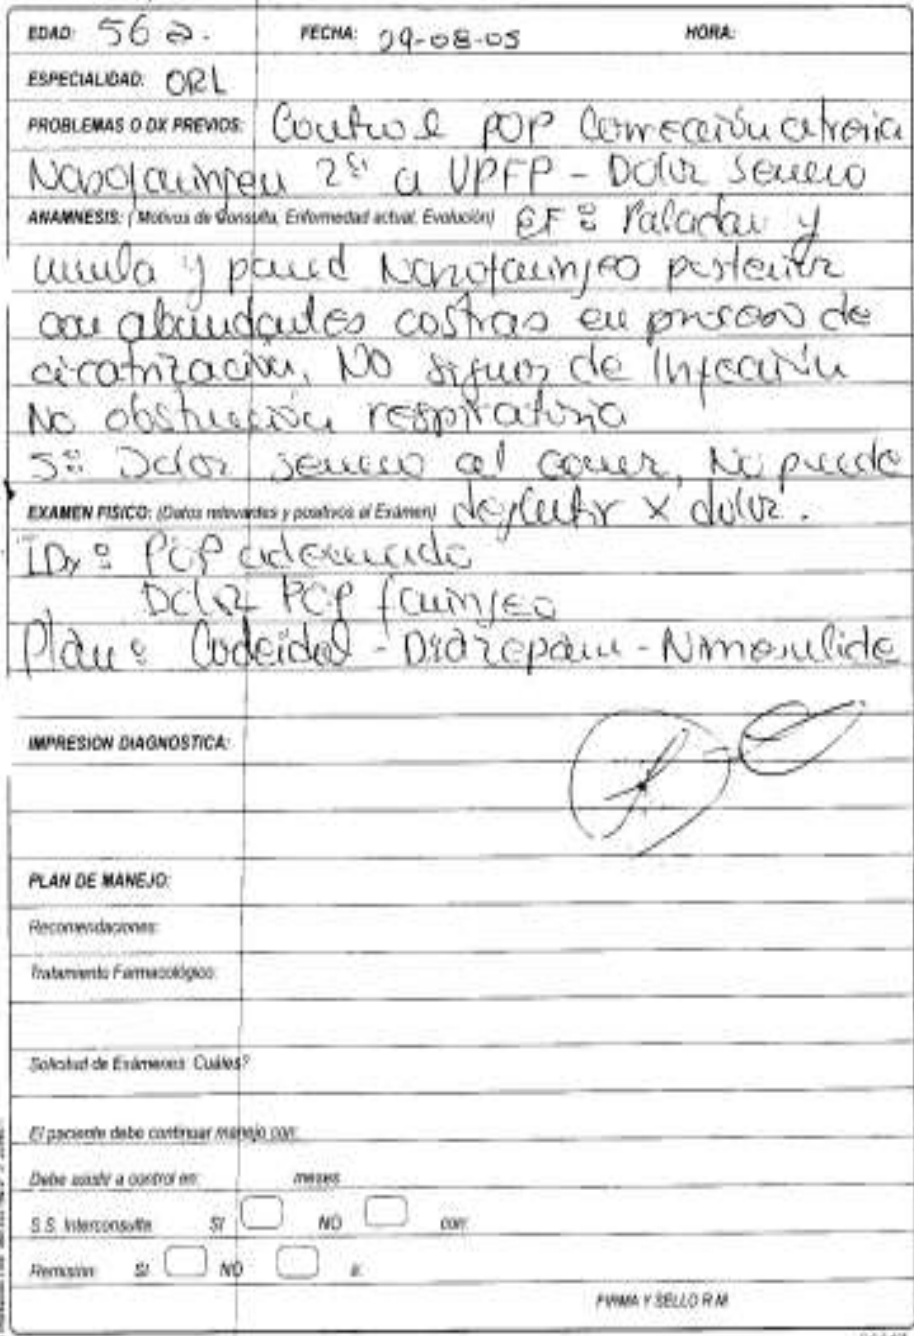 EDAD: 56 a. FECHA: 29-08-05 HORA:
ESPECIALIDAD: ORL
PROBLEMAS O DX PREVIOS: Control POP Corrección atresia
Nasofaringea 2ª a UPFP - Dolor severo
ANAMNESIS: (Motivos de Consulta, Enfermedad actual, Evolución) EF: Paladar y
uvula y pared Nasofaringeo posterior
con abundantes costras en proceso de
cicatrización, No signos de Infección
No obstrucción respiratoria
S: Dolor severo al comer, No puede
EXAMEN FISICO: (Datos relevantes y positivos al Exámen) deglutir x dolor.
IDx: POP adecuado
Dolor POP faringeo
Plan: Codeidol - Diazepam - Nimesulide
IMPRESION DIAGNOSTICA:
PLAN DE MANEJO:
Recomendaciones:
Tratamiento Farmacológico:
Solicitud de Exámenes Cuáles?
El paciente debe continuar manejo con:
Debe asistir a control en: meses
S.S. Interconsulta SI NO con:
Remisión SI NO a:
FIRMA Y SELLO R M